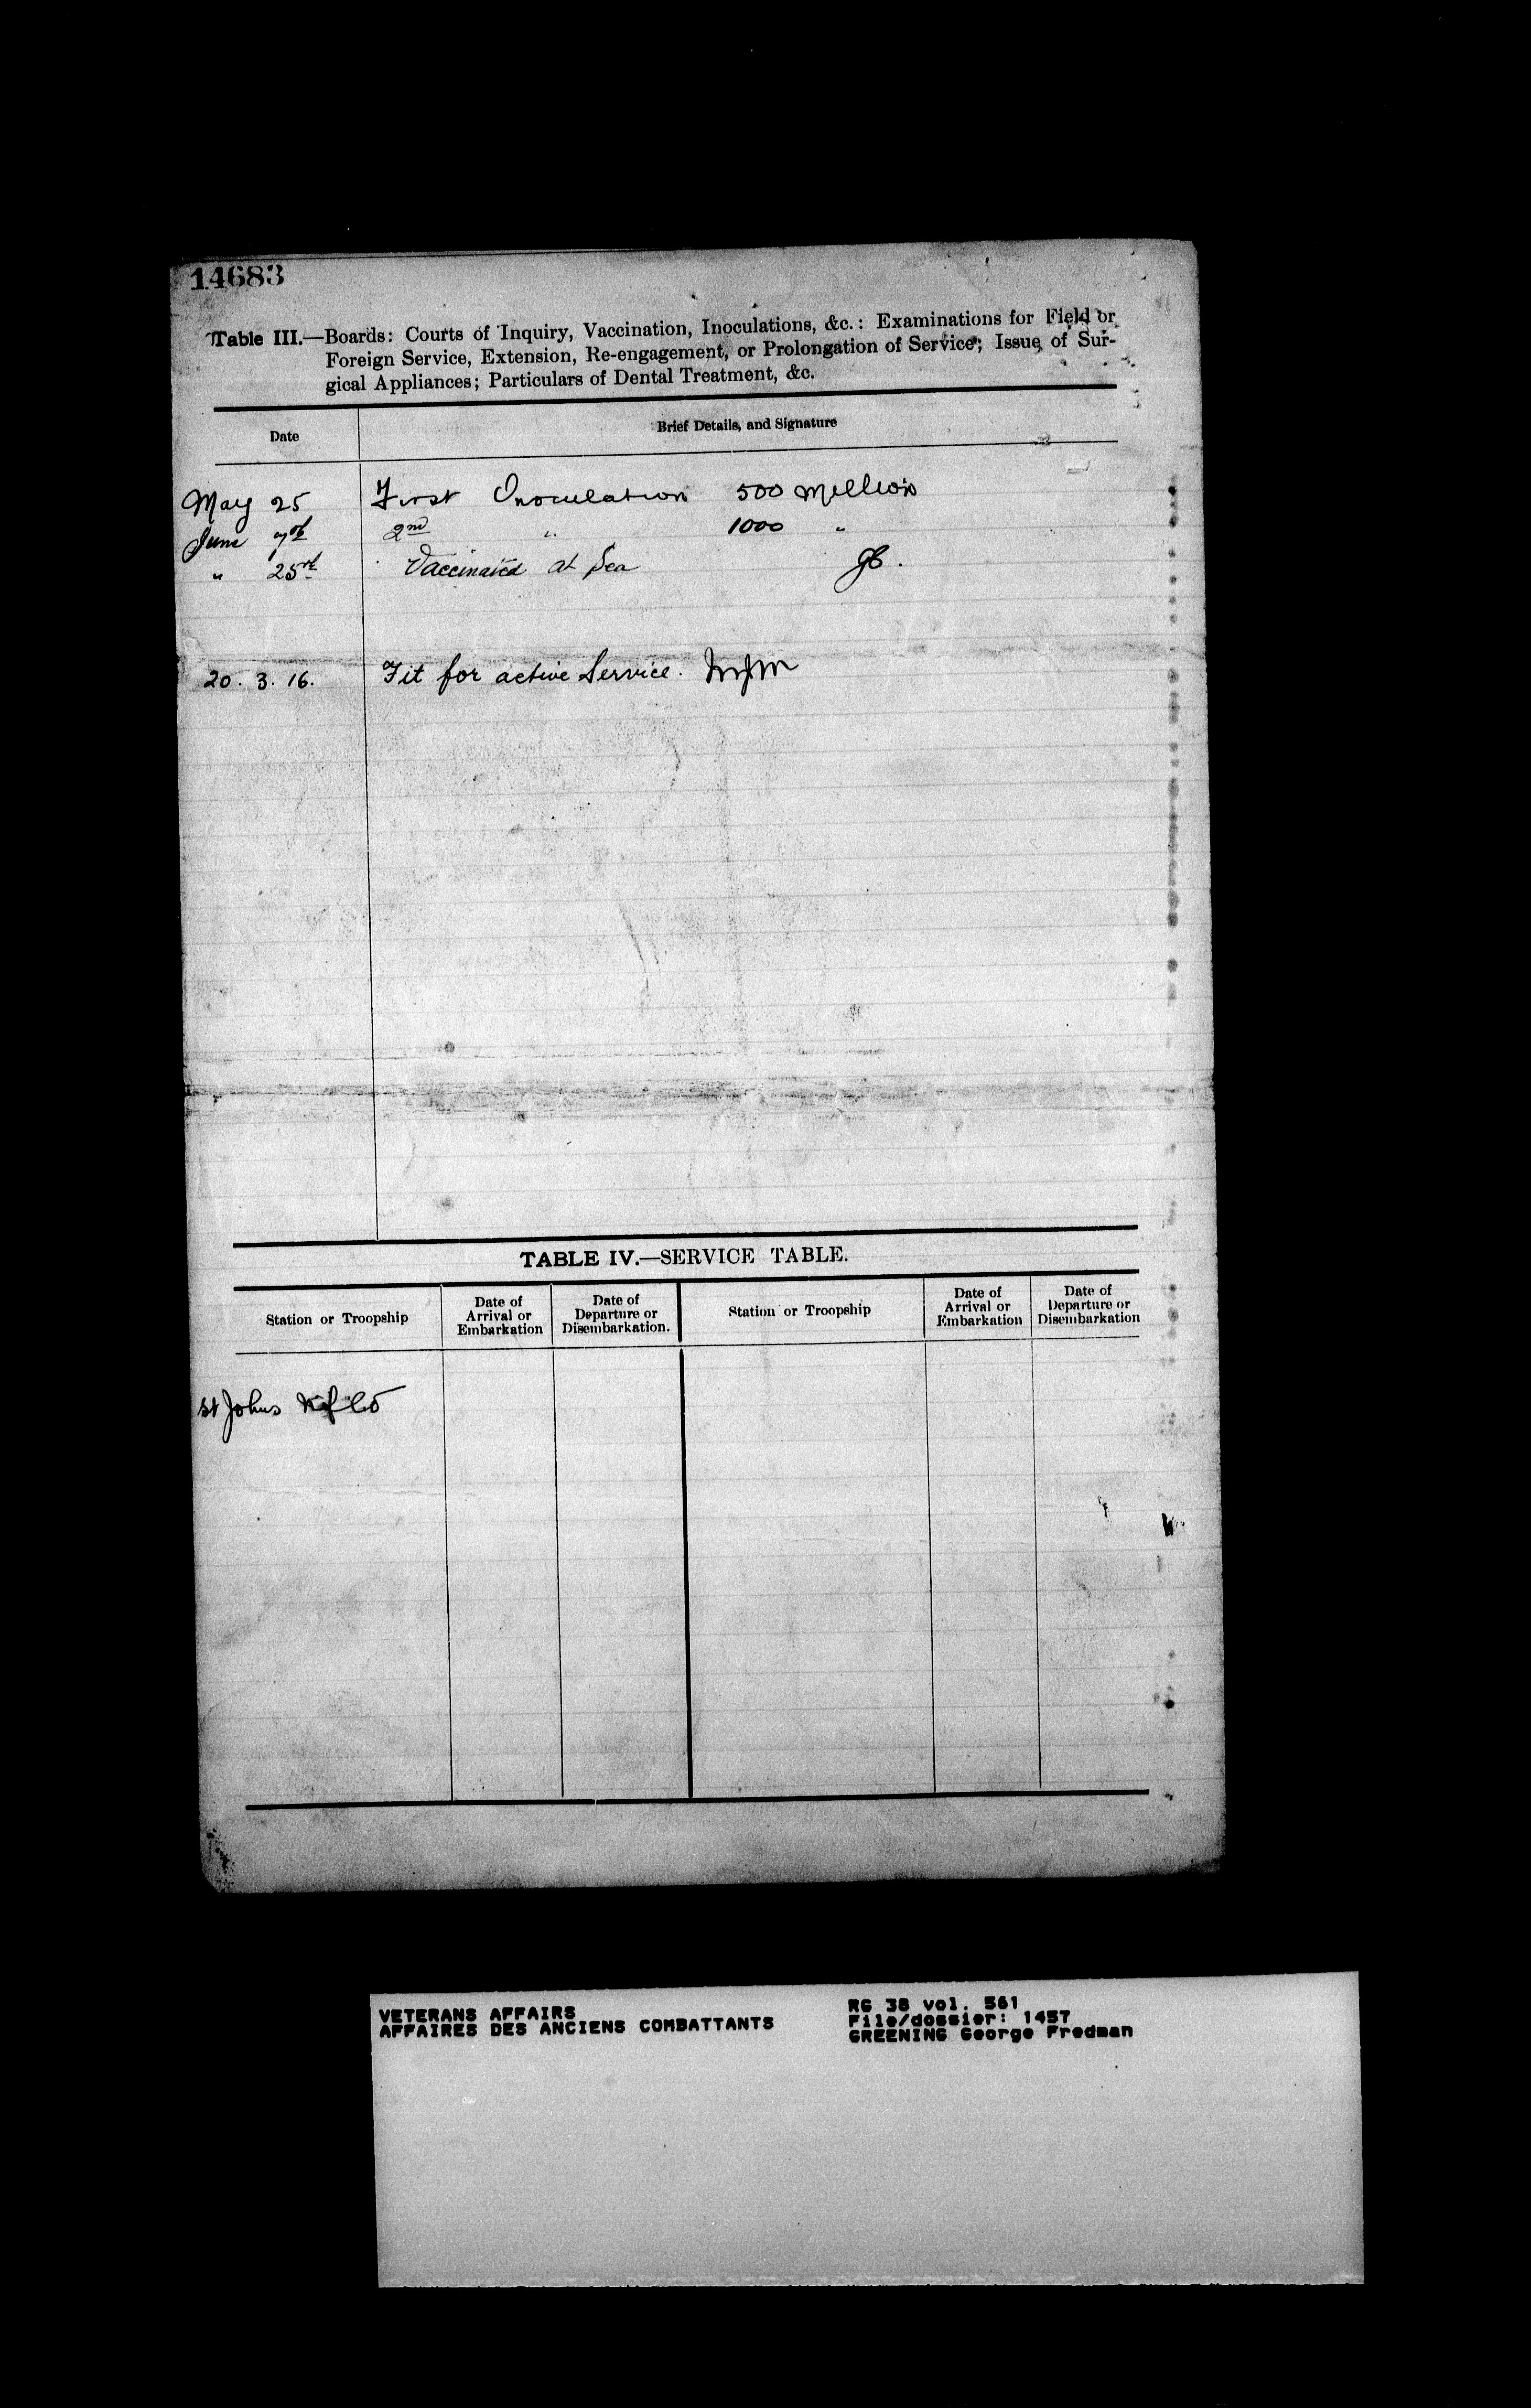 14683
Table III.—Boards: Courts of Inquiry, Vaccination, Inoculations, &c.: Examinations for Field or
Foreign Service, Extension, Re-engagement, or Prolongation of Service; Issue of Sur-
gical Appliances; Particulars of Dental Treatment, &c.
Date Brief Details, and Signature
May 25 First Inoculation 500 million
June 7th 2nd " 1000 "
" 25th Vaccinated at Sea
20. 3. 16. Fit for active Service.
TABLE IV.—SERVICE TABLE.
Station or Troopship Date of Arrival or Embarkation Date of Departure or Disembarkation. Station or Troopship Date of Arrival or Embarkation Date of Departure or Disembarkation
St Johns Nfld
VETERANS AFFAIRS
AFFAIRES DES ANCIENS COMBATTANTS
RG 38 vol. 561
File/dossier: 1457
GREENING George Fredman